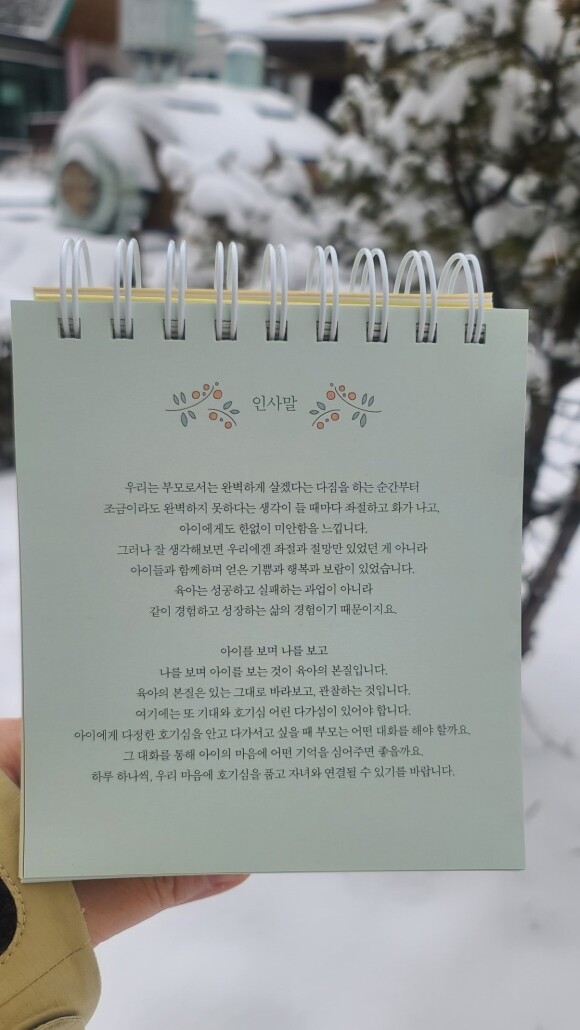 인사말
우리는 부모로서는 완벽하게 살겠다는 다짐을 하는 순간부터
조금이라도 완벽하지 못하다는 생각이 들 때마다 좌절하고 화가 나고,
아이에게도 한없이 미안함을 느낍니다.
그러나 잘 생각해보면 우리에겐 좌절과 절망만 있었던 게 아니라
아이들과 함께하며 얻은 기쁨과 행복과 보람이 있었습니다.
육아는 성공하고 실패하는 과업이 아니라
같이 경험하고 성장하는 삶의 경험이기 때문이지요.
아이를 보며 나를 보고
나를 보며 아이를 보는 것이 육아의 본질입니다.
육아의 본질은 있는 그대로 바라보고, 관찰하는 것입니다.
여기에는 또 기대와 호기심 어린 다가섬이 있어야 합니다.
아이에게 다정한 호기심을 안고 다가서고 싶을 때 부모는 어떤 대화를 해야 할까요.
그 대화를 통해 아이의 마음에 어떤 기억을 심어주면 좋을까요.
하루 하나씩, 우리 마음에 호기심을 품고 자녀와 연결될 수 있기를 바랍니다.